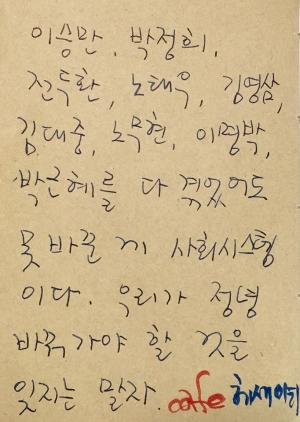 이승만, 박정희,
전두환, 노태우, 김영삼,
김대중, 노무현, 이명박,
박근혜를 다 겪었어도
못 바꾼 게 사회시스템
이다. 우리가 정녕
바꿔가야 할 것을
잊지는 말자. cafe